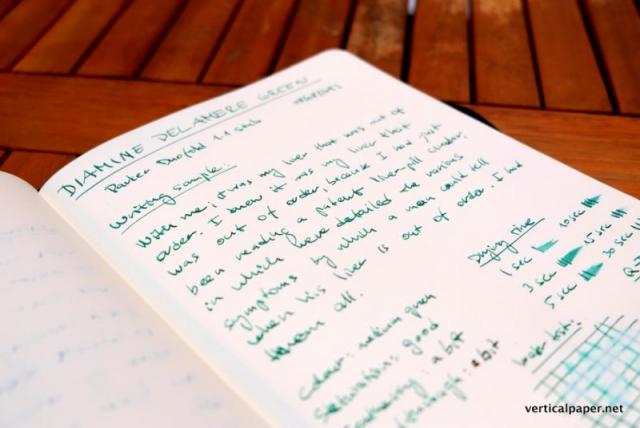 DIAMINE DELAMERE GREEN
Parker Duofold 1.1 stub
Writing sample:
With me, it was my liver that was out of
order. I knew it was my liver that
was out of order, because I had just
been reading a patent liver-pill circular,
in which were detailed the various
symptoms by which a man could tell
when his liver is out of order. I had
them all.
Colour: medium green
Saturation: good
a bit
: a bit
Drying time
1 sec
3 sec
5 sec
10 sec
15 sec
30 sec
Water test:
verticalpaper.net